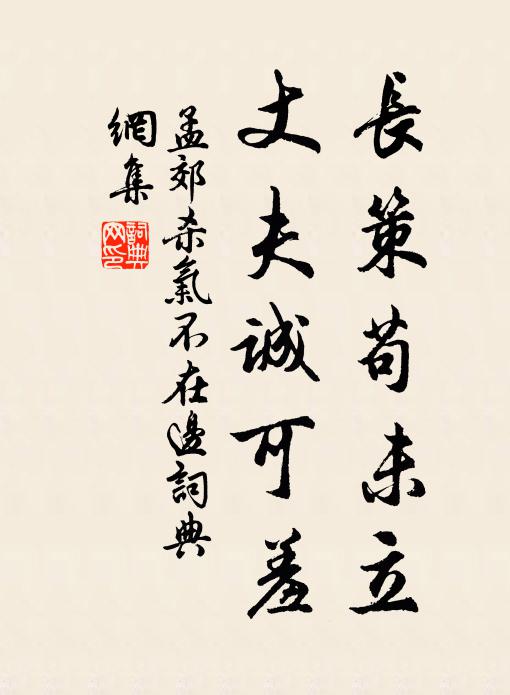 長策苟未立
丈夫誠可羞
孟郊杀氣不在邊詞典
網集
詞典
网印